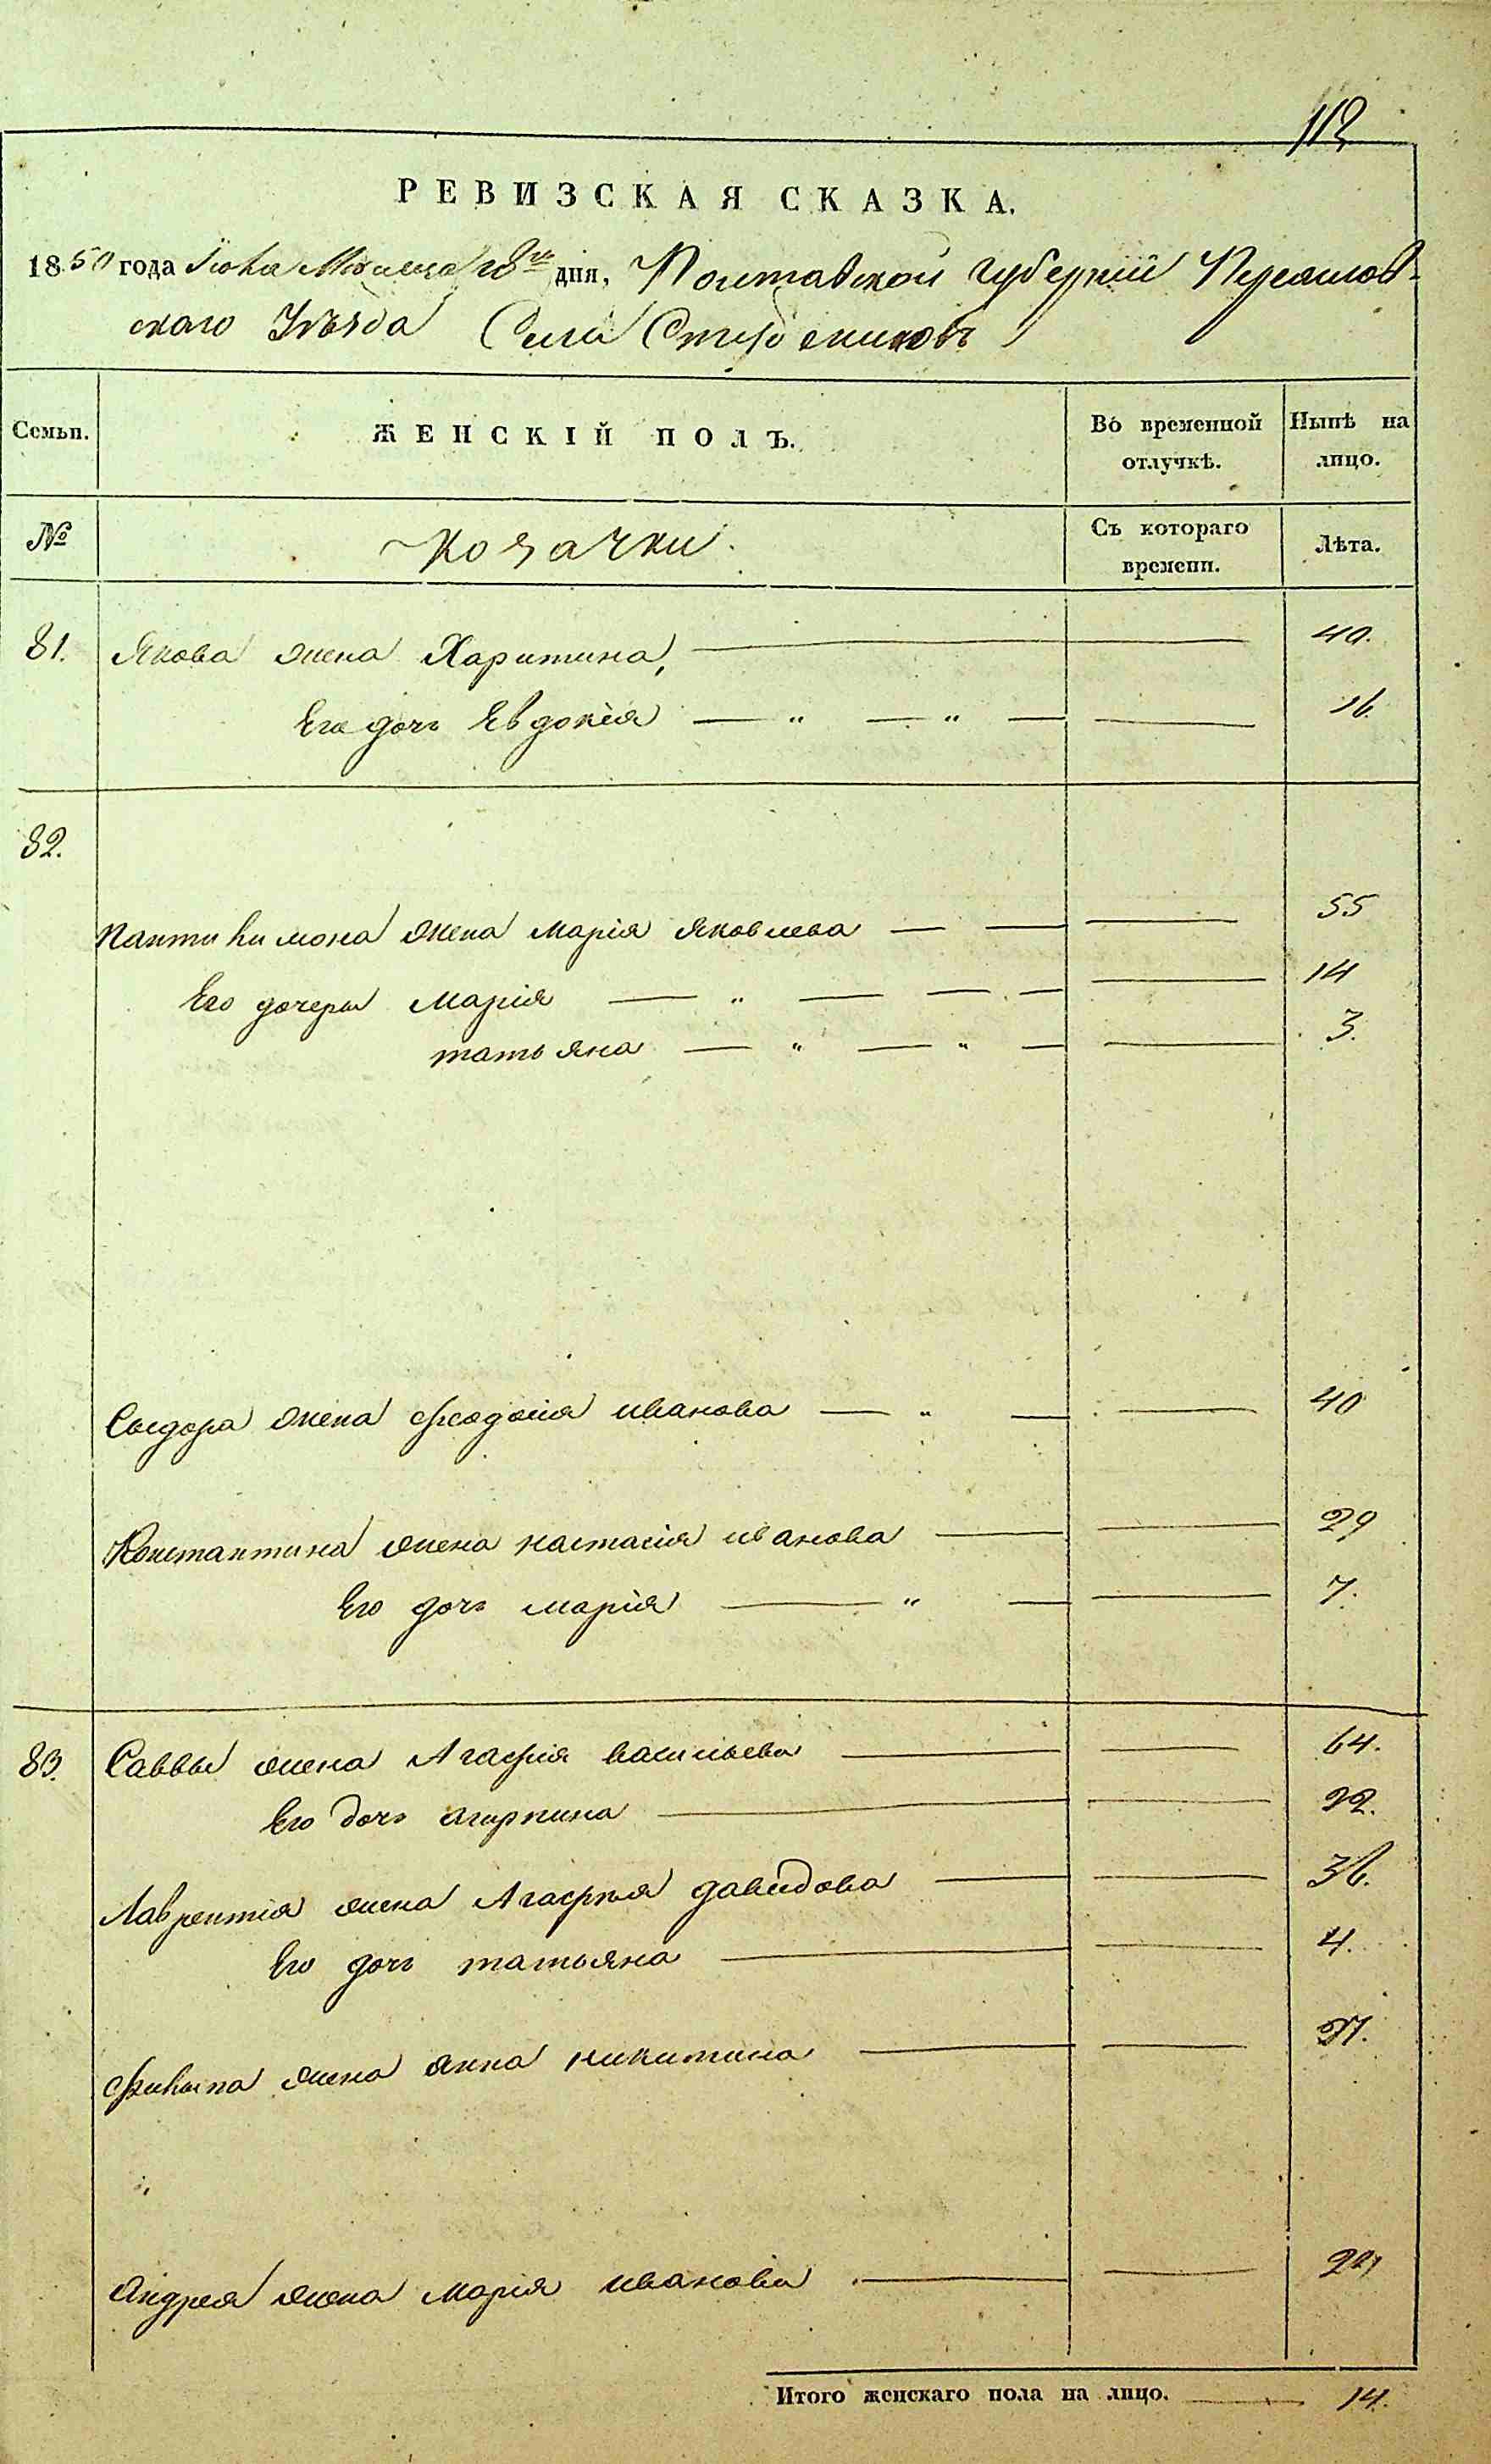 113
РЕВИЗСКАЯ СКАЗКА.
1850 года Іюля Мѣсяца 18го дня, Полтавской губерніи Переяслов-
скаго Уѣзда Села Стовпяковъ
Семьи. ЖЕНСКІЙ ПОЛЪ. Во временной отлучкѣ. Нынѣ на лицо.
№ Козачки. Съ котораго времени. Лѣта.
81. Якова жена Харитина, 40.
Его дочь Евдокія — " — " — 16.
82.
Пантилимона жена Марія Яковлева — — 55
Его дочери Марія — " — — — 14
татьяна — " — " — 3.
Сыдора жена Феодосія иванова — " — 40
Константина жена настасія иванова 29
Его дочь марія — " — 7.
83. Саввы жена Агафія васильева 64.
Его дочь агирпина 22.
Лаврентія жена Агафія давидова 36.
Его дочь татьяна 4.
Филыпа жена анна никитина 27.
Андрея жена Марія иванова
Итого женскаго пола на лицо. 14.